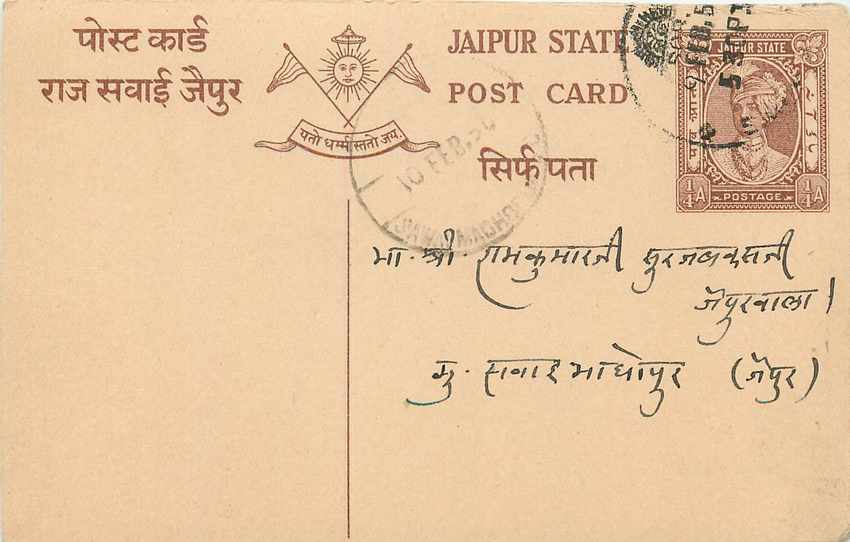 पोस्ट कार्ड
राज सवाई जैपुर
यतो धर्म्मस्ततो जय.
JAIPUR STATE
POST CARD
सिर्फ पता
JAIPUR STATE
पाव आना
1/4 A
POSTAGE
1/4 A
FEB. 5
5 3
10 FEB. 50
मा. श्री. रामकुमारजी सुरजबक्सजी
जैपुरवाला।
मु. सवाइ माधोपुर (जैपुर)